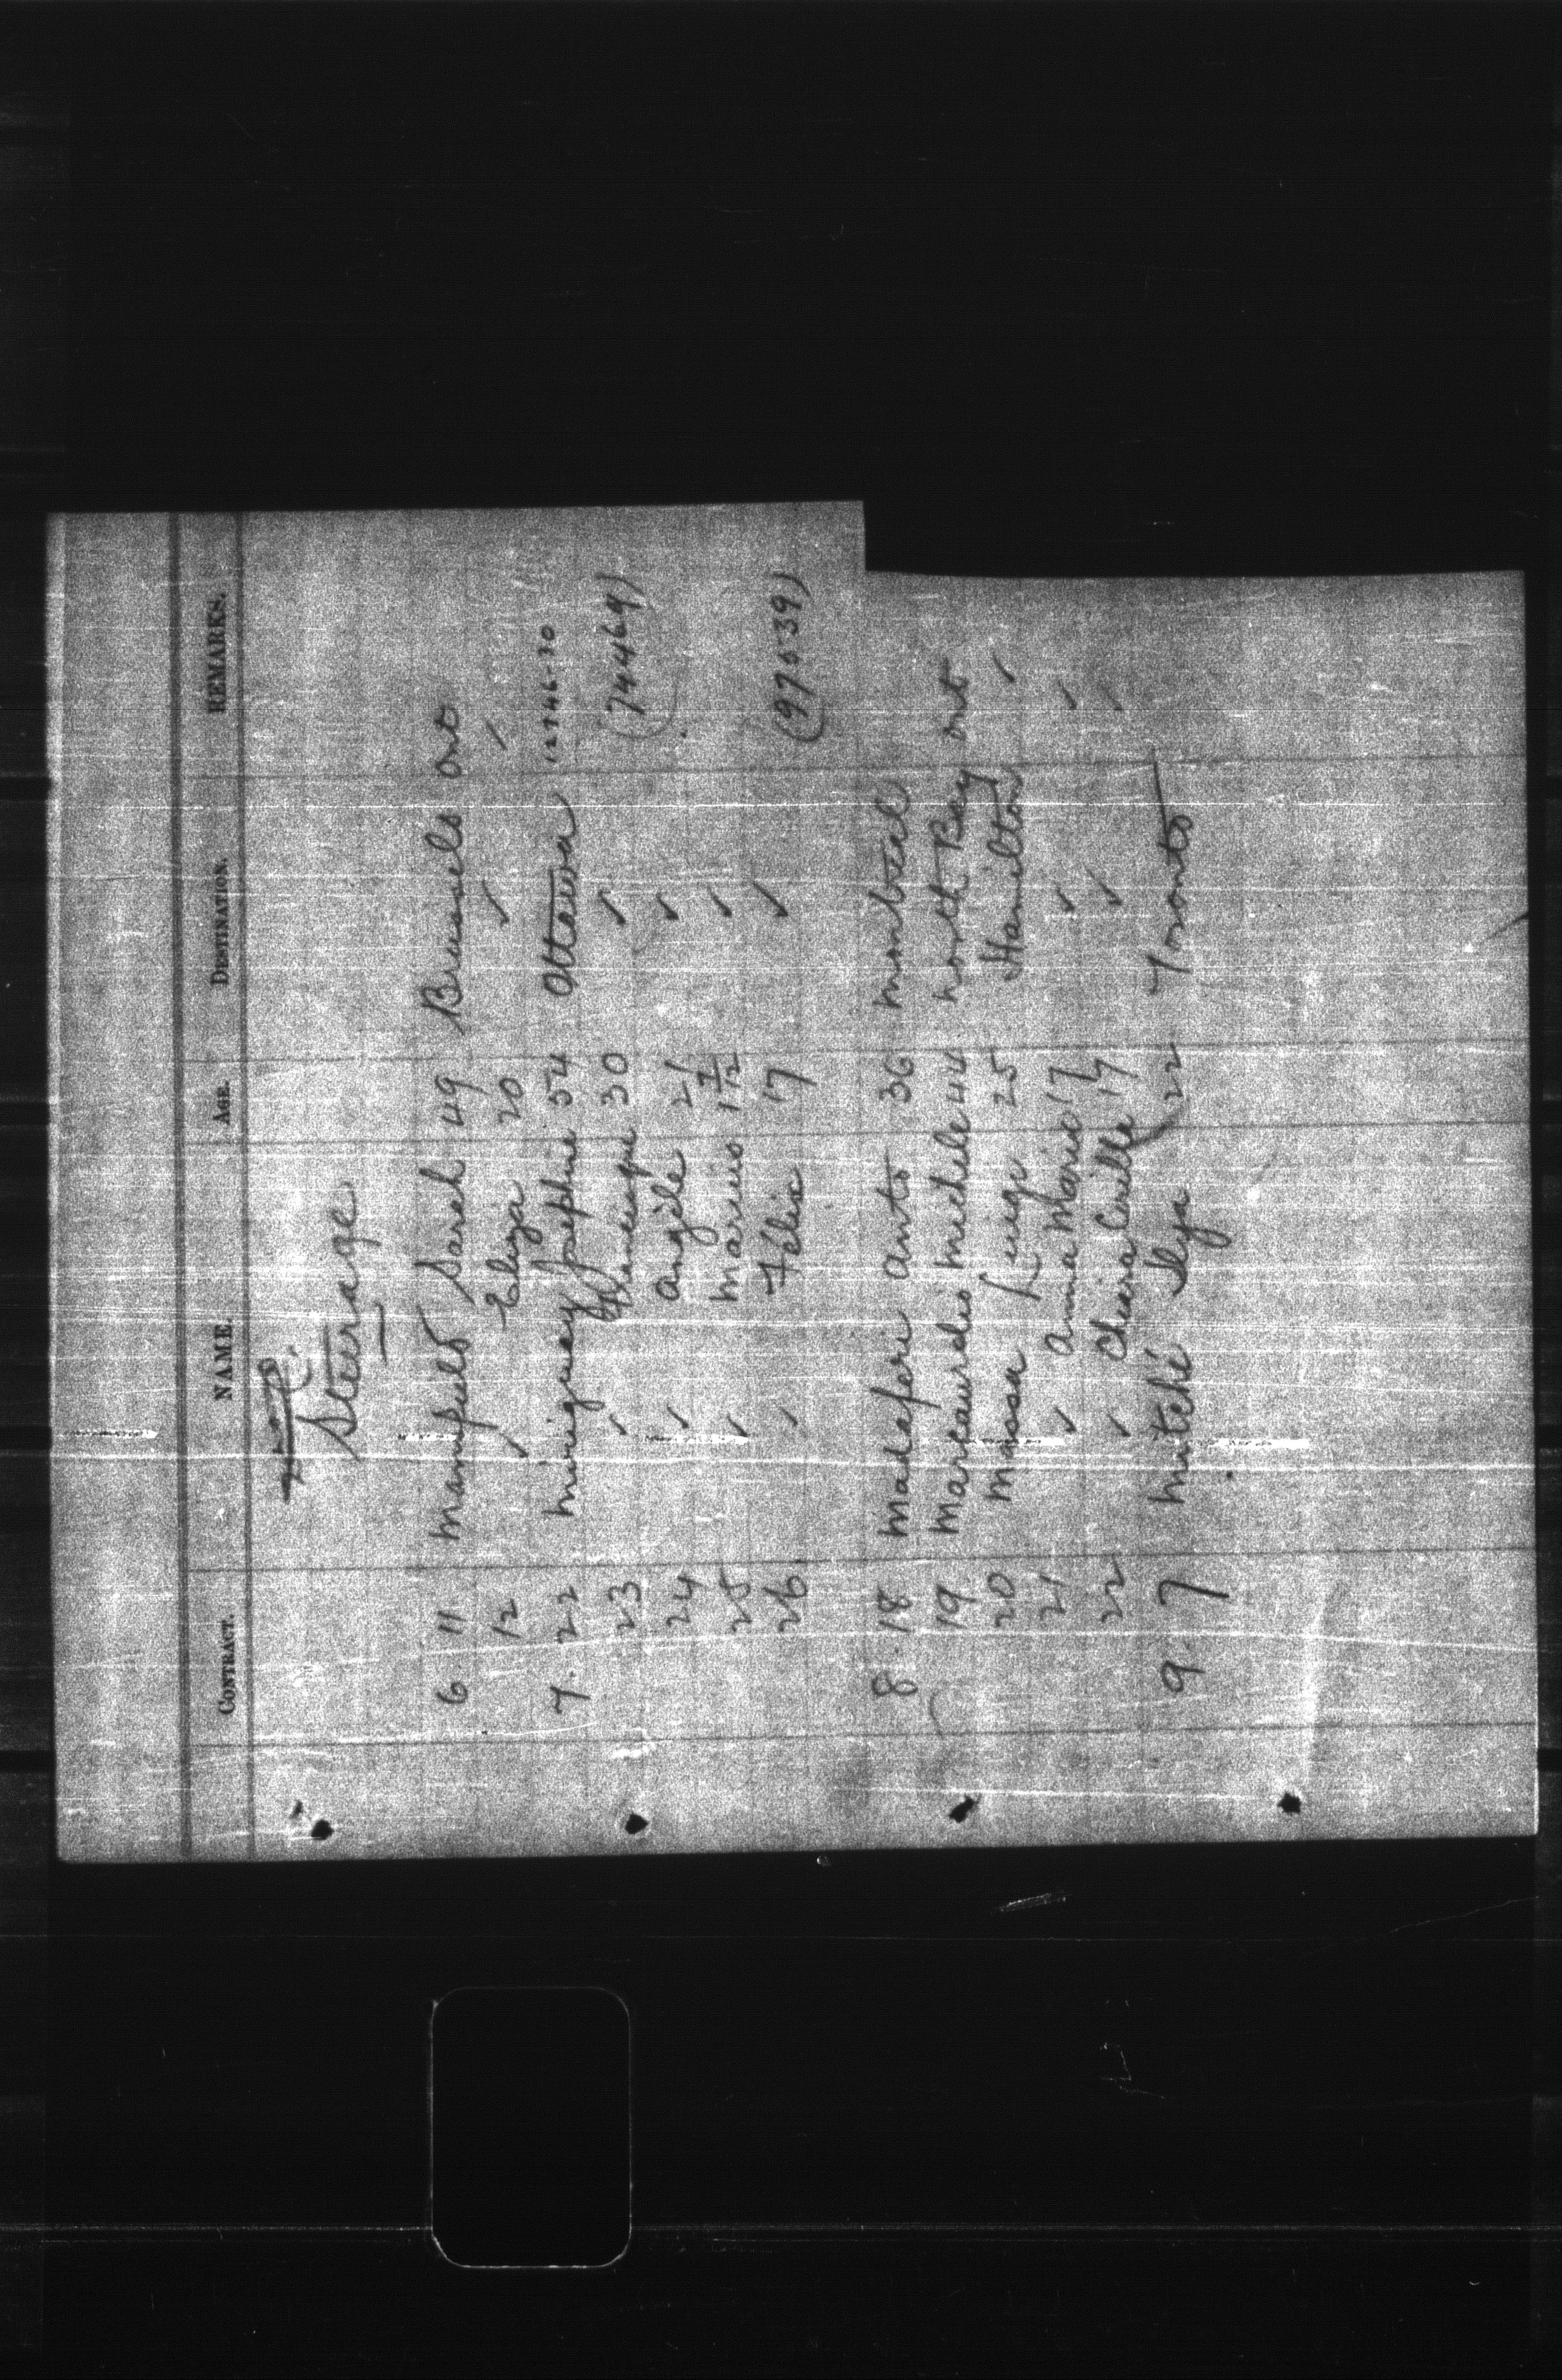 CONTRACT. NAME. AGE. DESTINATION. REMARKS.
Steerage
6 11 Manifield Sarah 49 Brussels Ont
12 Eliza 20 ✓
7. 22 Josephine 54 Ottawa 12746-30
✓ 23 30 ✓ (74469)
✓ 24 Angéle 21 ✓
✓ 25 Marius 1 7/12 ✓
✓ 26 Felix 17 ✓ (97039)
8. 18 Madaferi Anto 36 Montreal
19 Michele 44 North Bay Ont
20 Massa Luigi 25 Hamilton
21 ✓ Anna Marie 17 ✓
22 ✓ Chiara 17 ✓
9. 7 Mitché Ilya 22 Toronto